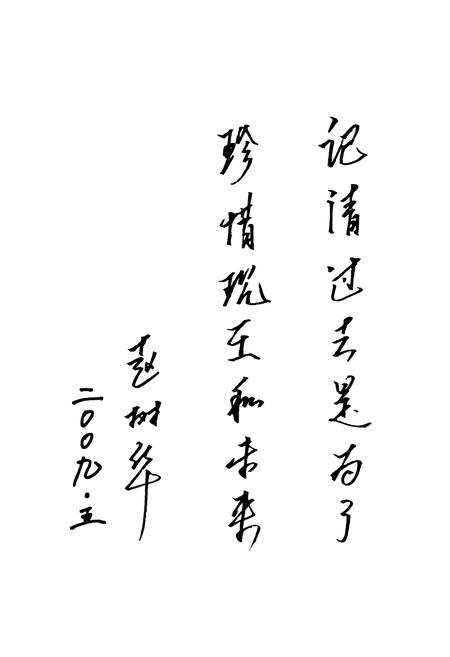 记请过去是为了
珍惜现在和未来
赵树华
二〇〇九·五